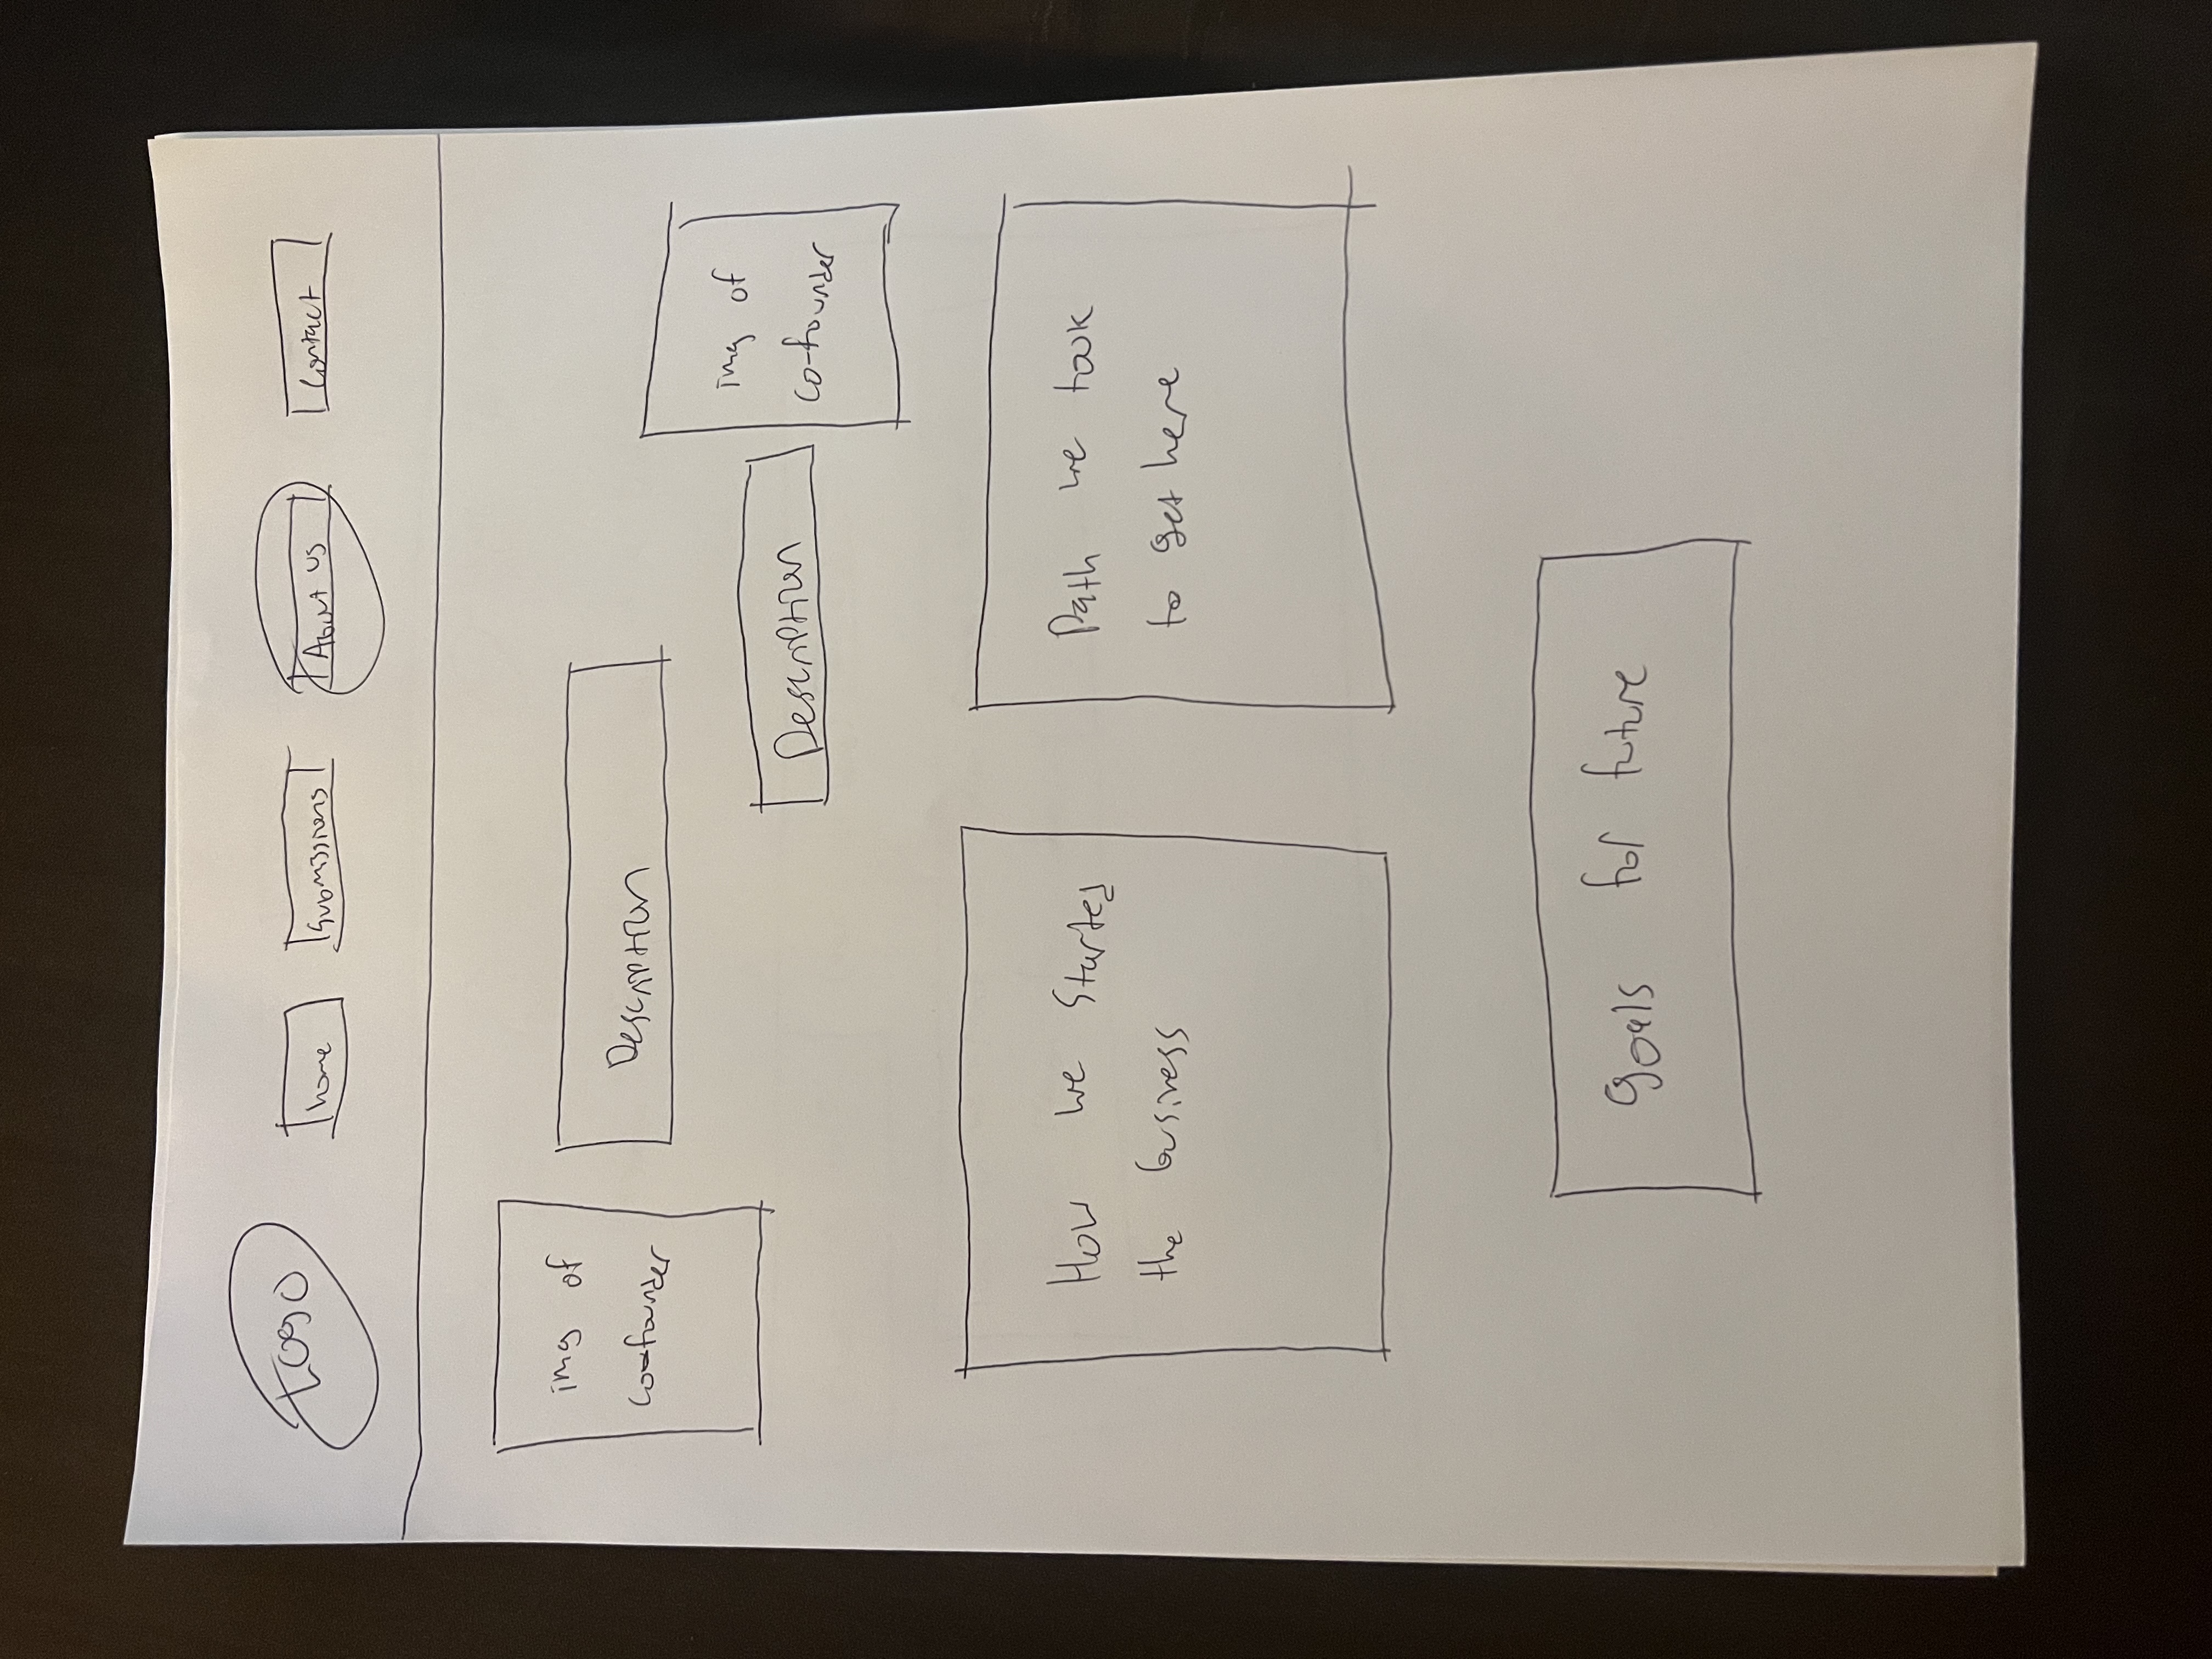 Logo
home
Submissions
About us
Contact
img of
co-founder
Description
img of
co-founder
Description
How we started
the business
Path we took
to get here
goals for future